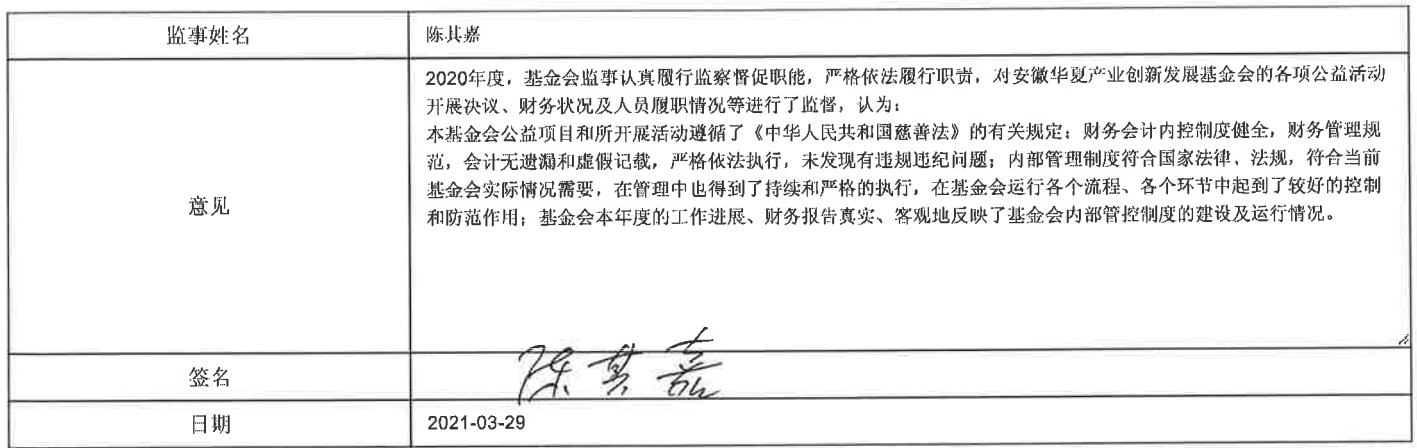 监事姓名
陈其嘉
意见
2020年度，基金会监事认真履行监察督促职能，严格依法履行职责，对安徽华夏产业创新发展基金会的各项公益活动
开展决议、财务状况及人员履职情况等进行了监督，认为：
本基金会公益项目和所开展活动遵循了《中华人民共和国慈善法》的有关规定；财务会计内控制度健全，财务管理规
范，会计无遗漏和虚假记载，严格依法执行，未发现有违规违纪问题；内部管理制度符合国家法律、法规，符合当前
基金会实际情况需要，在管理中也得到了持续和严格的执行，在基金会运行各个流程、各个环节中起到了较好的控制
和防范作用；基金会本年度的工作进展、财务报告真实、客观地反映了基金会内部管控制度的建设及运行情况。
签名
陈其嘉
日期
2021-03-29